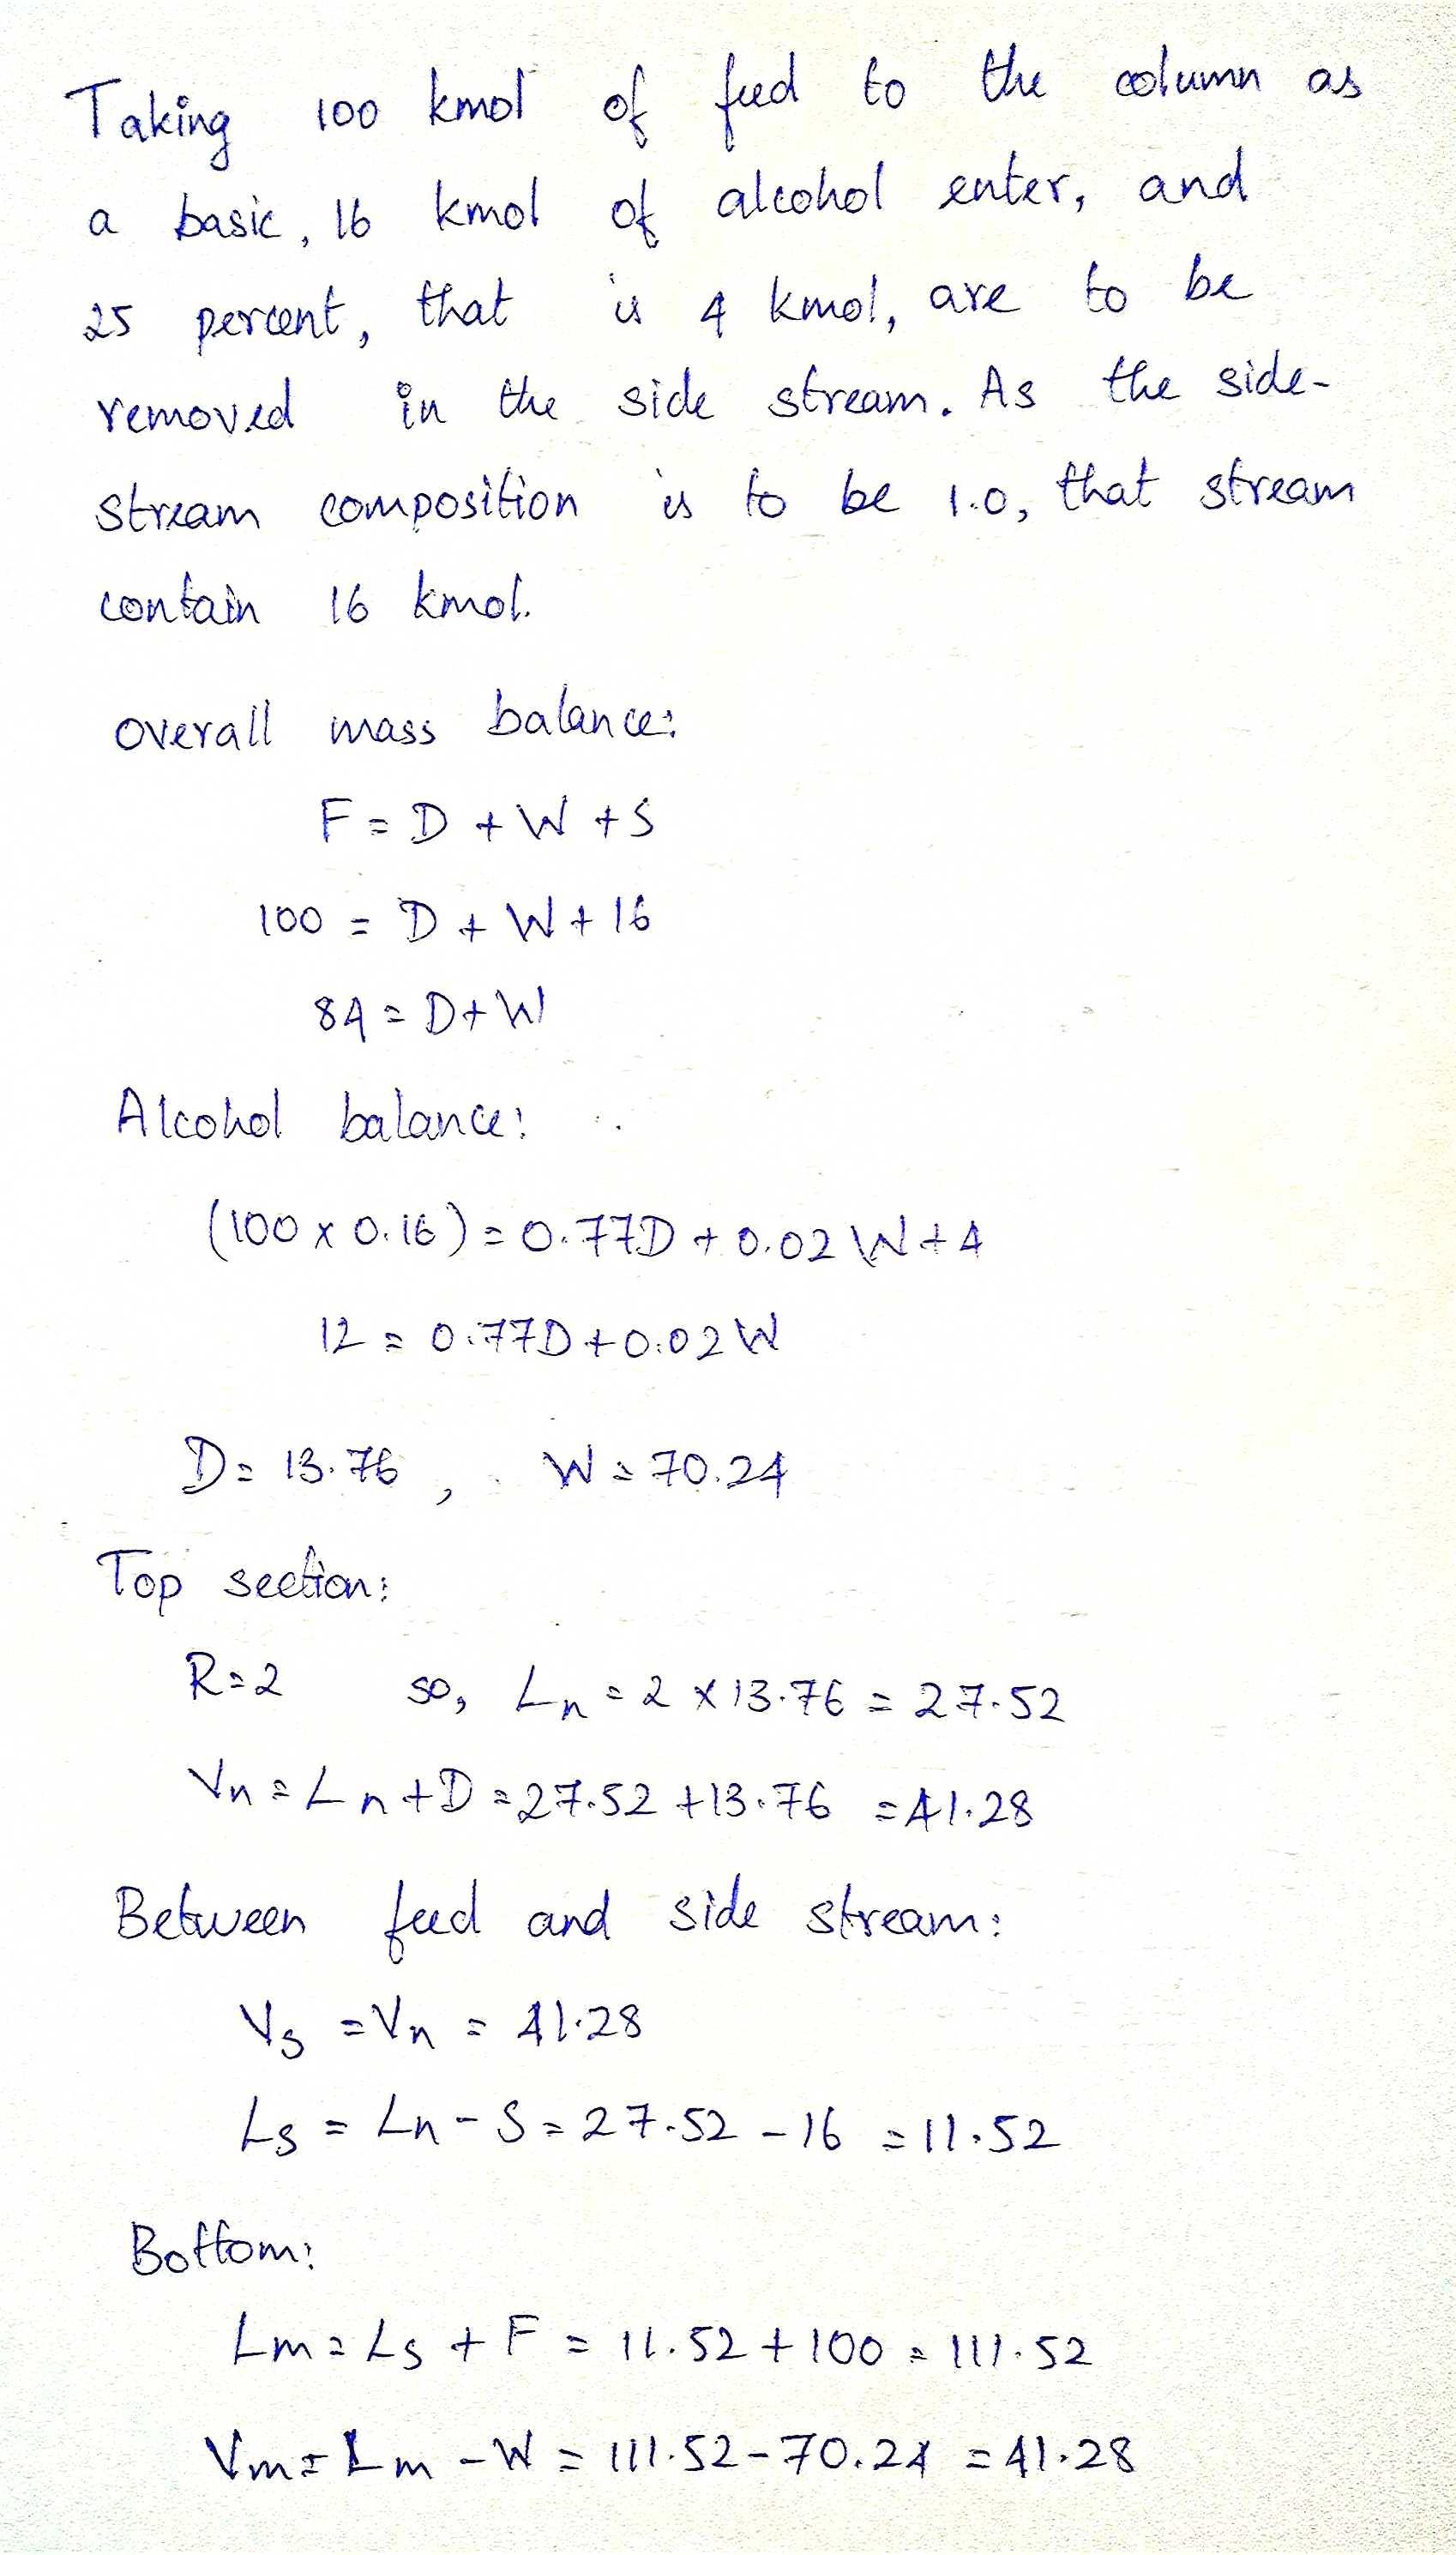 Taking 100 kmol of feed to the column as
a basic, 16 kmol of alcohol enter, and
25 percent, that is 4 kmol, are to be
removed in the side stream. As the side-
stream composition is to be 1.0, that stream
contain 16 kmol.
overall mass balance:
F = D + W + S
100 = D + W + 16
84 = D + W
Alcohol balance:
(100 x 0.16) = 0.77D + 0.02 W + 4
12 = 0.77D + 0.02 W
D = 13.76 , W = 70.24
Top section:
R = 2 so, Ln = 2 x 13.76 = 27.52
Vn = Ln + D = 27.52 + 13.76 = 41.28
Between feed and side stream:
Vs = Vn = 41.28
Ls = Ln - S = 27.52 - 16 = 11.52
Bottom:
Lm = Ls + F = 11.52 + 100 = 111.52
Vm = Lm - W = 111.52 - 70.24 = 41.28